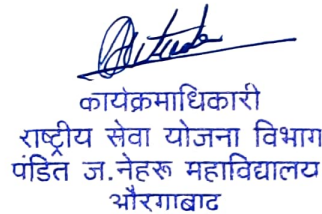 कार्यक्रमाधिकारी
राष्ट्रीय सेवा योजना विभाग
पंडित ज.नेहरू महाविद्यालय
औरंगाबाद